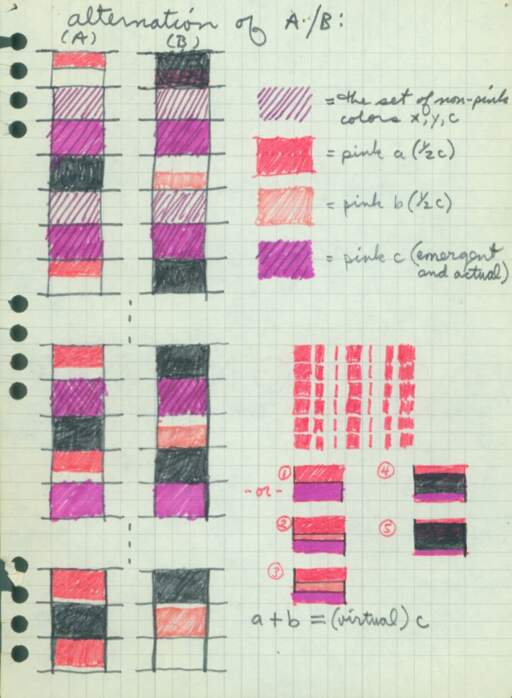 alternation of A/B:
(A) (B)
= the set of non-pink
colors x, y, c
= pink a (½c)
= pink b (½c)
= pink c (emergent
and actual)
①
④
-or-
②
⑤
③
a + b = (virtual) c